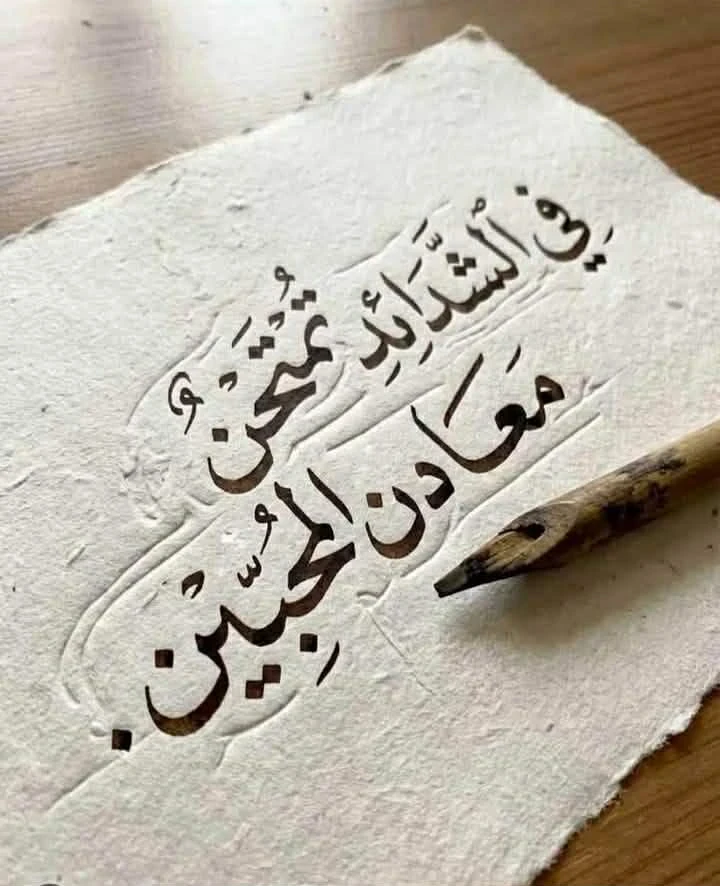 فِي الشَّدَائِدِ تُمْتَحَنُ
مَعَادن المُحِبِّيْن.